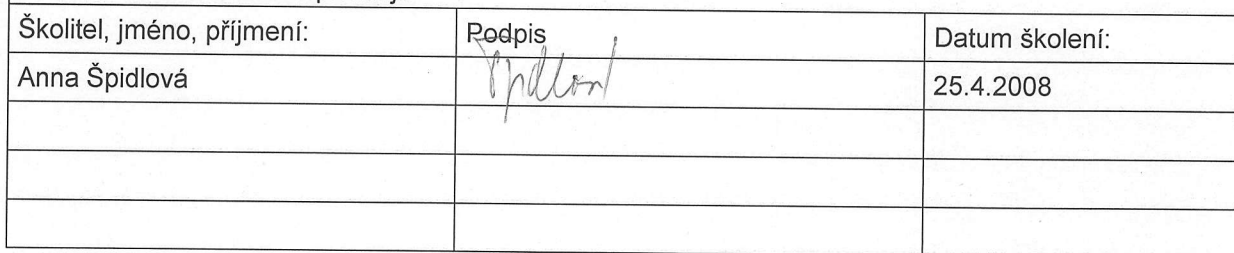 Školitel, jméno, příjmení: Podpis Datum školení:
Anna Špidlová Špidlová 25.4.2008